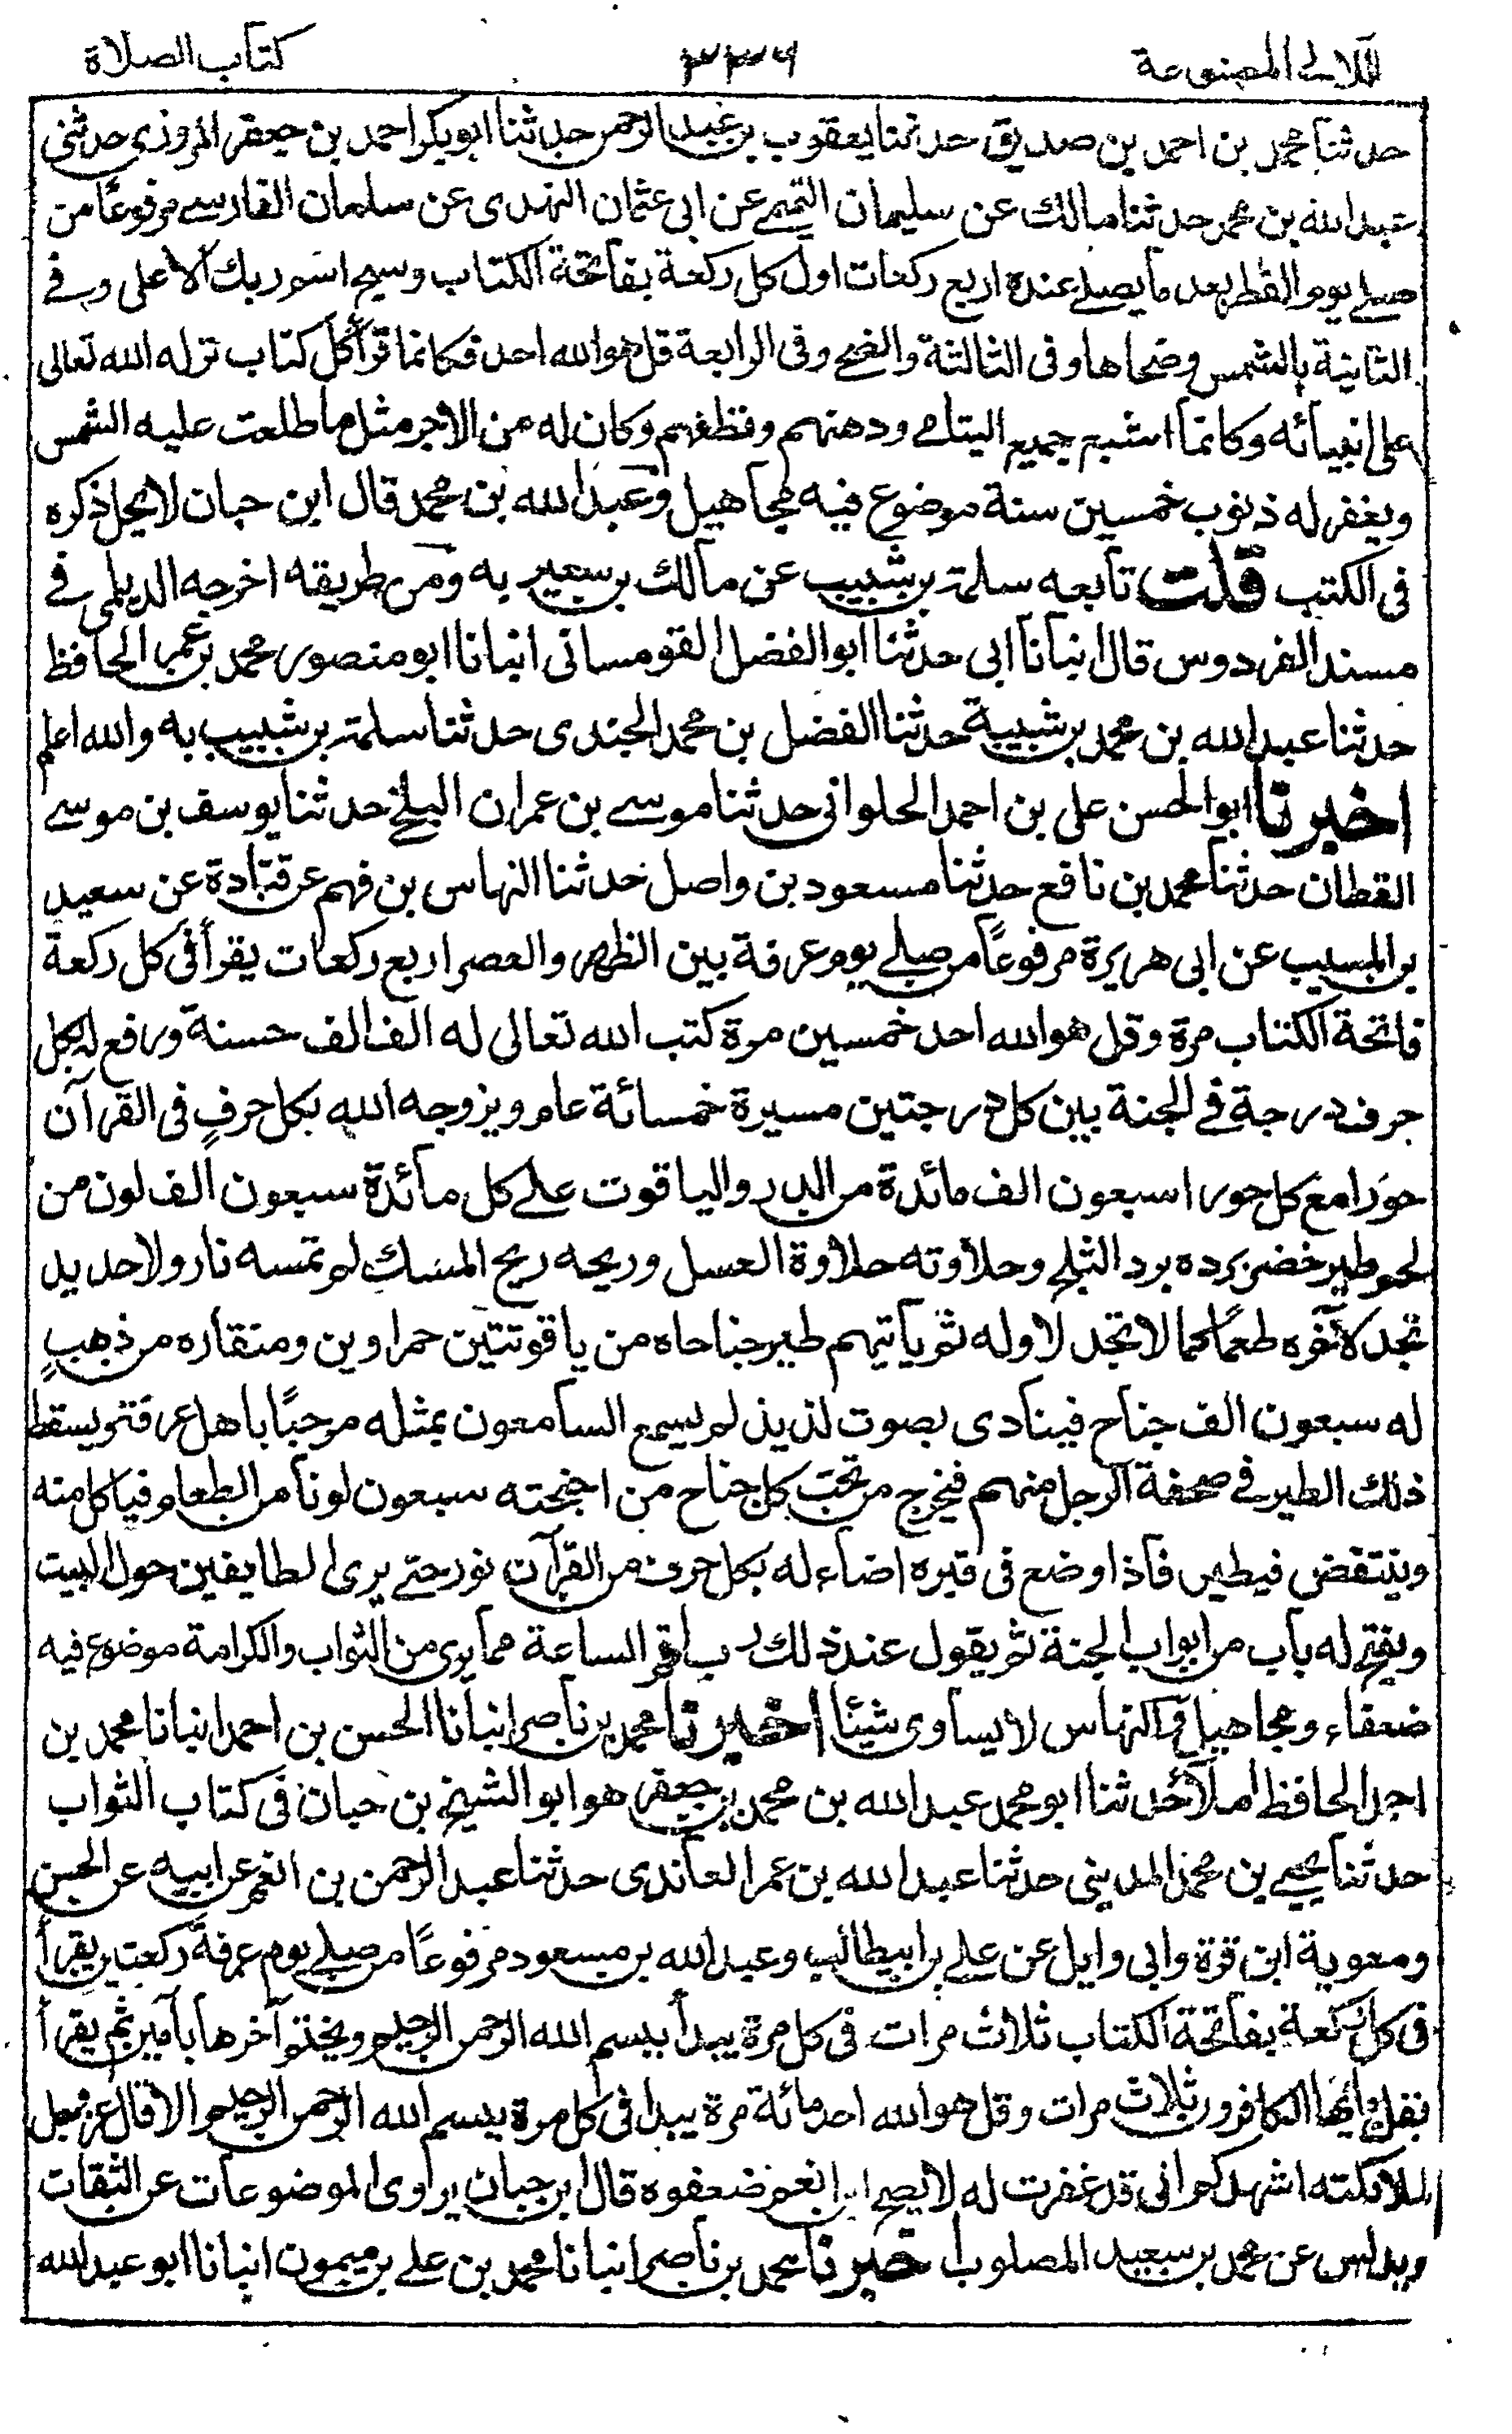 اللآلى المصنوعة
كتاب الصلاة
حدثنا محمد بن احمد بن صديق حدثنا يعقوب بن عبد الرحمن حدثنا ابو بكر احمد بن جعفر المروزى حدثنى
عبد الله بن محمد حدثنا مالك عن سليمان التيمى عن ابى عثمان النهدى عن سلمان الفارسى مرفوعًا من
صلى يوم الفطر بعد ما يصلى عنده اربع ركعات اول كل ركعة بفاتحة الكتاب وسبح اسم ربك الاعلى وفى
الثانية بالشمس وضحاها وفى الثالثة والضحى وفى الرابعة قل هو الله احد فكانما قرأ كل كتاب نزله الله تعالى
على انبيائه وكانما اشبع جميع اليتامى ودهنهم ونظفهم وكان له من الاجر مثل ما طلعت عليه الشمس
ويغفر له ذنوب خمسين سنة موضوع فيه مجاهيل وعبد الله بن محمد قال ابن حبان لا يحل ذكره
فى الكتب قلت تابعه سلمة بن شبيب عن مالك بن سعير به ومن طريقه اخرجه الديلمى فى
مسند الفردوس قال انبأنا ابى حدثنا ابو الفضل القومسانى انبانا ابو منصور محمد بن عمر الحافظ
حدثنا عبد الله بن محمد بن شيبة حدثنا الفضل بن محمد الجندى حدثنا سلمة بن شبيب به والله اعلم
اخبرنا ابو الحسن على بن احمد الحلوانى حدثنا موسى بن عمران البلخى حدثنا يوسف بن موسى
القطان حدثنا محمد بن نافع حدثنا مسعود بن واصل حدثنا النهاس بن فهم عن قتادة عن سعيد
بن المسيب عن ابى هريرة مرفوعًا من صلى يوم عرفة بين الظهر والعصر اربع ركعات يقرأ فى كل ركعة
فاتحة الكتاب مرة وقل هو الله احد خمسين مرة كتب الله تعالى له الف الف حسنة ورفع له بكل
حرف درجة فى الجنة بين كل درجتين مسيرة خمسائة عام ويزوجه الله بكل حرفٍ فى القرآن
حورا مع كل حورا سبعون الف مائدة من الدر والياقوت على كل مائدة سبعون الف لون من
لحم طير خضر برده برد الثلج وحلاوته حلاوة العسل وريحه ريح المسك لم تمسه نار ولا حديد
تجد لآخره طعمًا كما لا تجد لاوله ثم ياتيهم طير جناحاه من ياقوتتين حمراوين ومنقاره من ذهبٍ
له سبعون الف جناح فينادى بصوت لذيذ لم يسمع السامعون بمثله مرحبًا باهل عرفة ويسقط
ذلك الطير فى صحفة الرجل منهم فيخرج من تحت كل جناح من اجنحته سبعون لونا من الطعام فياكل منه
وينتفض فيطير فاذا وضع فى قبره اضاء له بكل حرف من القرآن نور حتى يرى الطايفين حول البيت
ويفتح له باب من ابواب الجنة ثم يقول عند ذلك رب اقم الساعة مما يرى من الثواب والكرامة موضوع فيه
ضعفاء ومجاهيل والنهاس لا يساوى شيئا اخبرنا محمد بن ناصر انبانا الحسن بن احمد انبانا محمد بن
احمد الحافظ املآءً حدثنا ابو محمد عبد الله بن محمد بن جعفر هو ابو الشيخ بن حبان فى كتاب الثواب
حدثنا يحيى بن محمد المدينى حدثنا عبد الله بن عمر العاندى حدثنا عبد الرحمن بن انعم عن ابيه عن الحسن
ومعوية ابن قرة وابى وايل عن على بن ابيطالب وعبد الله بن مسعود مرفوعًا من صلى يوم عرفة ركعتين يقرأ
فى كل ركعة بفاتحة الكتاب ثلاث مرات فى كل مرة يبدأ ببسم الله الرحمن الرحيم ويختم آخرها بآمين ثم يقرأ
بقل يا ايها الكافرون ثلاث مرات وقل هو الله احد مائة مرة يبدا فى كل مرة ببسم الله الرحمن الرحيم الا قال عز وجل
لملائكته اشهدكم انى قد غفرت له لا يصح ابن انعم ضعفوه قال ابن حبان يروى الموضوعات عن الثقات
ويدلس عن محمد بن سعيد المصلوب اخبرنا محمد بن ناصر انبانا محمد بن على بن ميمون انبانا ابو عبد الله